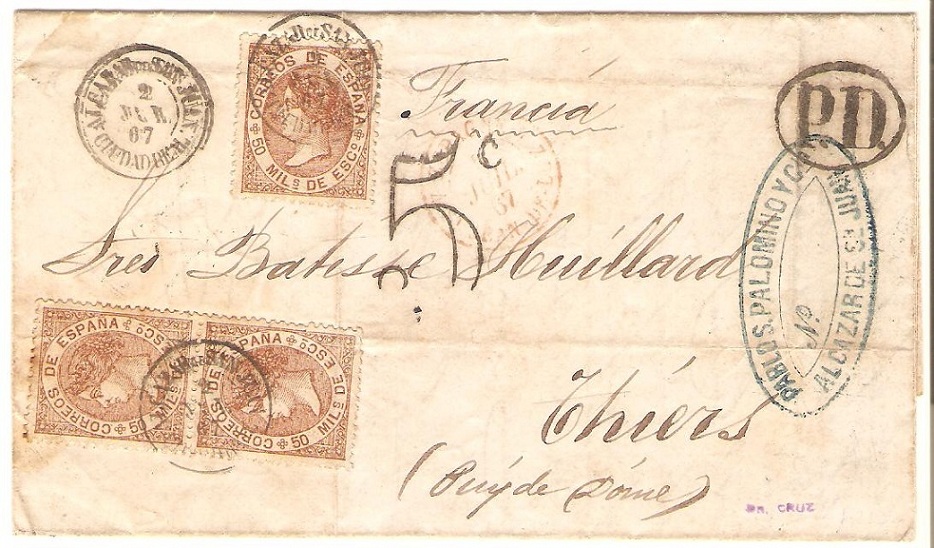 ALCAZAR DE SAN JUAN
2
JUL.
67
CIUDAD REAL
CORREOS DE ESPAÑA
50 MILS DE ESCO
Francia
P.D.
5 C
JUIL.
67
Sres Batisse Huillard
PABLO S. PALOMINO Y Co
No
ALCAZAR DE Sn JUAN
CORREOS DE ESPAÑA
50 MILS DE ESCO
CORREOS DE ESPAÑA
50 MILS DE ESCO
Thiers
(Puy de Dôme)
CRUZ